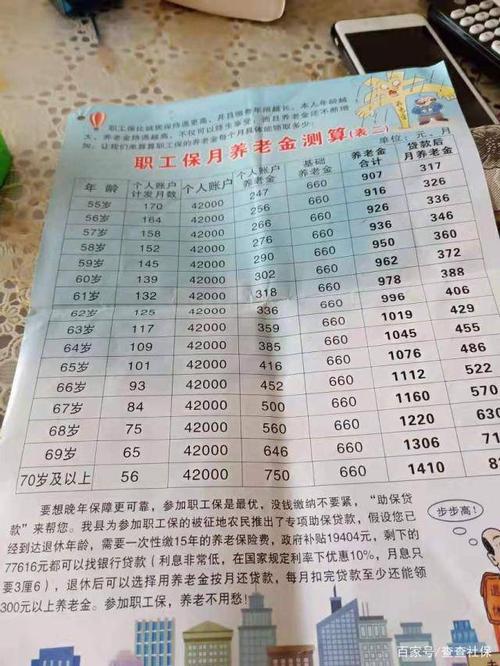 职工保比城居保待遇更高，并且缴费年限越长、本人年龄越
大，养老金待遇越高，不仅可以终生享受，而且养老金还不断增
加。让我们来算算职工保的养老金每个月具体能领取多少：
职工保月养老金测算(表二)
单位：元、月
年龄 个人账户计发月数 个人账户 个人账户养老金 基础养老金 养老金合计 贷款后月养老金
55岁 170 42000 247 660 907 317
56岁 164 42000 256 660 916 326
57岁 158 42000 266 660 926 336
58岁 152 42000 276 660 936 346
59岁 145 42000 290 660 950 360
60岁 139 42000 302 660 962 372
61岁 132 42000 318 660 978 388
62岁 125 42000 336 660 996 406
63岁 117 42000 359 660 1019 429
64岁 109 42000 385 660 1045 455
65岁 101 42000 416 660 1076 486
66岁 93 42000 452 660 1112 522
67岁 84 42000 500 660 1160 570
68岁 75 42000 560 660 1220 630
69岁 65 42000 646 660 1306 71
70岁及以上 56 42000 750 660 1410 82
要想晚年保障更可靠，参加职工保是最优，没钱缴纳不要紧，“助保贷
款”来帮您。我县为参加职工保的被征地农民推出了专项助保贷款，假设您已
经到达退休年龄，需要一次性缴15年的养老保险费，政府补贴19404元，剩下的
77616元都可以找银行贷款（利息非常低，在国家规定利率下优惠10%，月息只
要3厘6），退休后可以选择用养老金按月还贷款，每月扣完贷款至少还能领
300元以上养老金。参加职工保，养老不用愁！
步步高！
百家号/查查社保